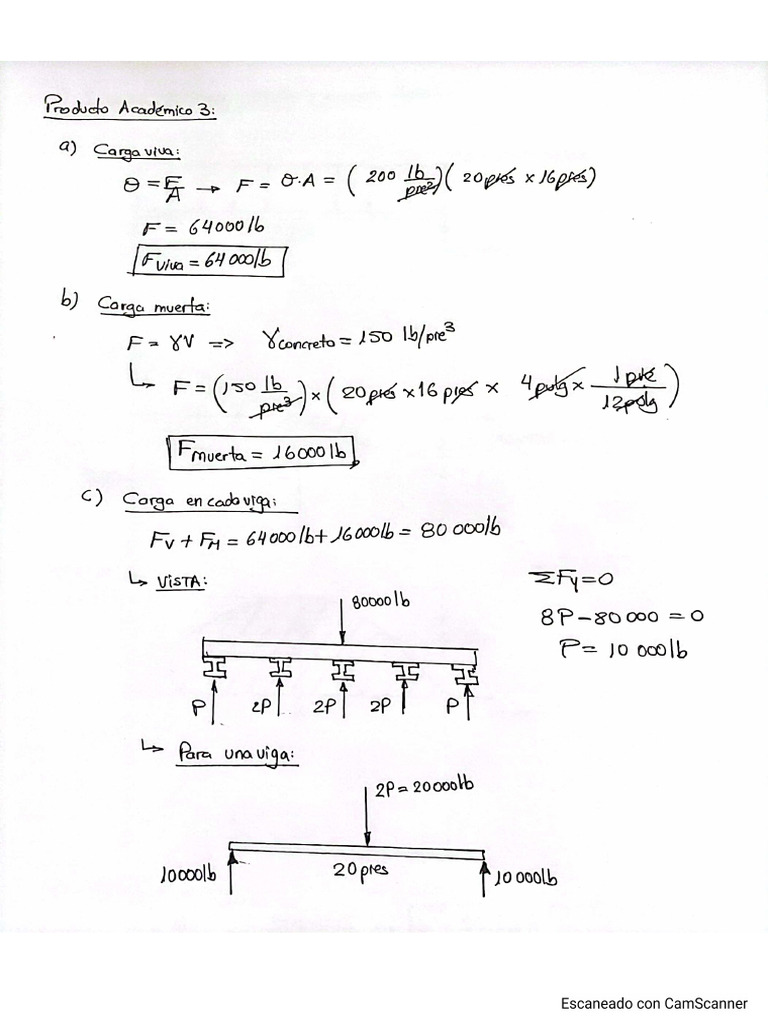 Producto Académico 3:
a) Carga viva:
θ = F/A → F = θ·A = (200 lb/pie²)(20pies x 16pies)
F = 64000 lb
Fviva = 64000lb
b) Carga muerta:
F = γV => γconcreto = 150 lb/pie³
F = (150 lb/pie³) x (20pies x 16 pies x 4pulg x 1pie/12pulg)
Fmuerta = 16000 lb
c) Carga en cada viga:
FV + FM = 64000 lb + 16000lb = 80 000lb
↳ VISTA:
ΣFy=0
80000 lb
8P - 80 000 = 0
P = 10 000lb
P 2P 2P 2P P
↳ Para una viga:
2P = 20000lb
10000lb 20 pies 10 000lb
Escaneado con CamScanner